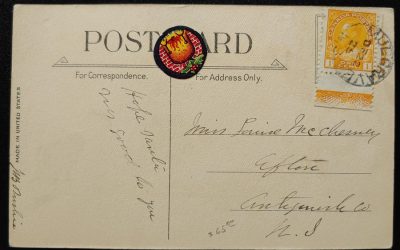 POST CARD
For Correspondence.
For Address Only.
MADE IN UNITED STATES
Hope Santa
was good to you
Miss Louise McChesney
Antigonish Co
N. S
$65.00